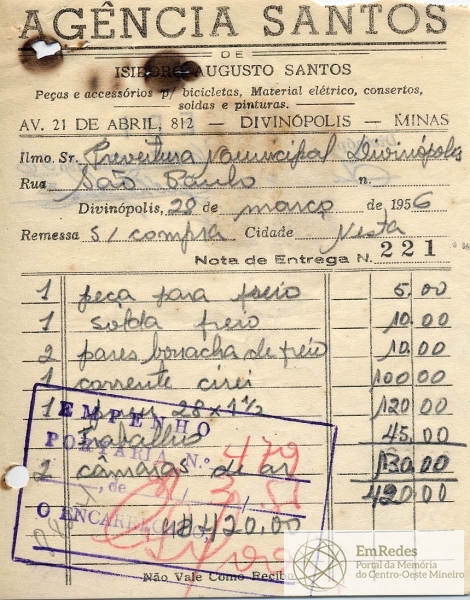 AGÊNCIA SANTOS
DE
ISIDORO AUGUSTO SANTOS
Peças e accessórios p/ bicicletas, Material elétrico, consertos,
soldas e pinturas.
AV. 21 DE ABRIL, 812 — DIVINÓPOLIS — MINAS
Ilmo. Sr. Prefeitura Municipal Divinópolis
Rua São Paulo n.
Divinópolis, 28 de março de 1956
Remessa S/ compra Cidade Nesta
Nota de Entrega N. 221
1 peça para freio 5.00
1 solda freio 10.00
2 pares borracha de freio 10.00
1 corrente 100.00
1 28 x 1 1/2 120.00
Trabalho 45.00
2 câmaras de ar 130.00
420.00
EMPENHO
PORTARIA N.º 479
, de / 3 /
O ENCARREGADO
420.00
Não Vale Como Recibo
EmRedes
Portal da Memória
do Centro-Oeste Mineiro